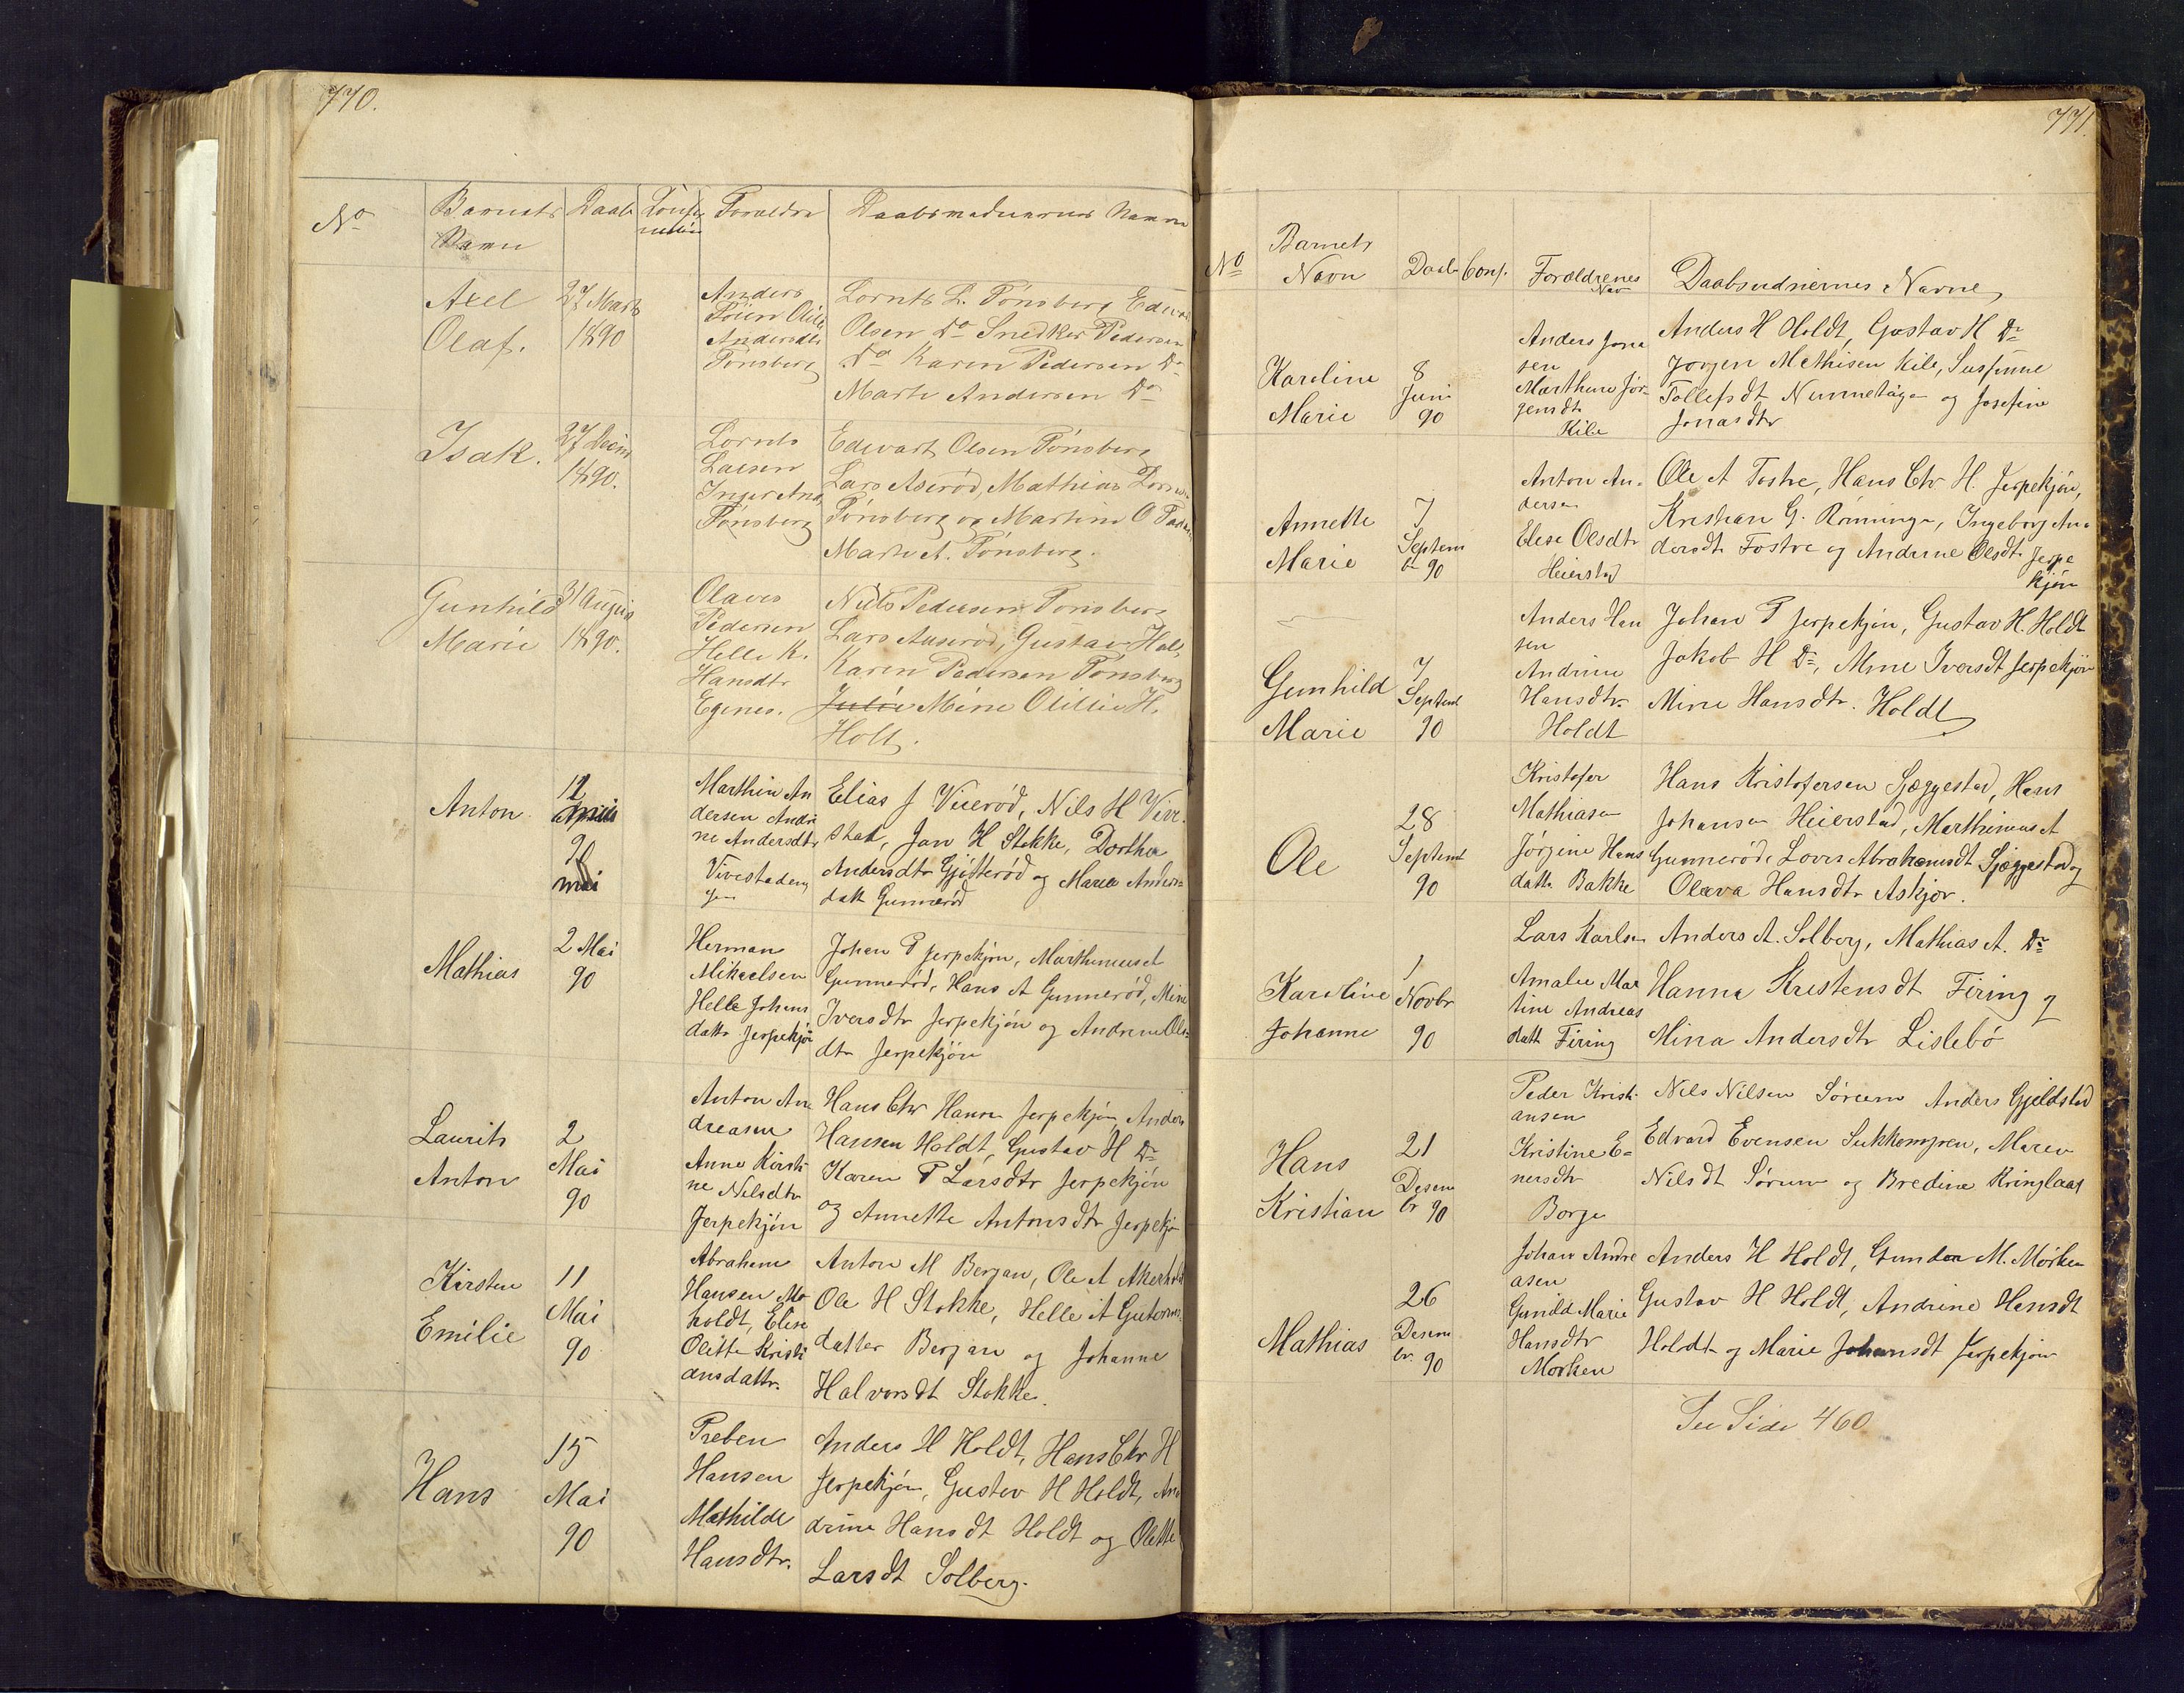 770.
No Barnets Navn Daab Confirmation Forældre Daabsvidnernes Navne
Axel
Olaf.
27 Marts
1890
Anders
Olsen
Andersdtr
Tönsberg
Lornts L. Tönsberg Edvar
Olsen Do Snedker Pedersen
Do Karen Pedersen Do
Marte Andersen Do
Isak.
27 Decem
1890.
Lornts
Larsen
Inger And
Tönsberg
Edvart Olsen Tönsberg
Lars Aserød, Mathias
Tönsberg og Martine O
Marte A. Tönsberg.
Gunhild
Marie
31 August
1890.
Olaves
Pedersen
Helle K.
Hansdtr
Egenes.
Nils Pedersen Tönsberg
Lars Auserød, Gustav Holt
Karen Pedersen Tönsberg
Julie Mine Olillie H.
Holt.
Anton
12
April
90
mai
Marthin An
dersen Andri
ne Andersdtr
Vivestadeng
gen
Elias J Vierød, Nils H Vive
stad, Jan H Stokke, Dorthea
Andersdtr Gjitterød og Maren Anders
datt Gunnerød
Mathias
2 Mai
90
Herman
Mikaelsen
Helle Johans
datter Jerpekjøn
Johan P Jerpekjøn, Marthinius A
Gunnerød, Hans A Gunnerød, Mine
Iversdtr Jerpekjøn og Andrine Ols
dtr Jerpekjøn
Laurits
Anton
2
Mai
90
Anton An
dreasen
Anne Kirsti
ne Nilsdtr
Jerpekjøn
Hans Chr Hansen Jerpekjøn, Anders
Hansen Holdt, Gustav H Do
Karen P Larsdtr Jerpekjøn
og Annette Antonsdtr Jerpekjø
Kirsten
Emilie
11
Mai
90
Abraham
Hansen Mo
holdt, Elise
Olitte Kristi
ansdattr.
Anton M Bergan, Ole A Akerholt
Ole H Stokke, Helle A Gutorms
datter Bergan og Johanne
Halvorsdt Stokke.
Hans
15
Mai
90
Preben
Hansen
Mathilde
Hansdtr.
Anders H Holdt, Hans Chr H
Jerpekjøn, Gustav H Holdt, An
drine Hansdt Holdt og Olette
Larsdt Solberg.
771.
No Barnets Navn Daab Conf. Forældrenes Nav Daabsvidnernes Navne
Karoline
Marie
8
Juni
90
Anders Jona
sen
Marthine Jör
gensdt
Kile
Anders H Holdt, Gustav H Do
Jørgen Mathisen Kile, Susanne
Tollefsdt Nummetaga og Josefine
Jonasdtr
Annette
Marie
7
Septem
br 90
Anton An
dersen
Elese Olsdtr
Heierstad
Ole A Fostre, Hans Chr H. Jerpekjøn,
Kristian G. Rönninge, Ingeborg An
dersdt Fostre og Andrine Olsdt Jerpe
kjøn
Gunhild
Marie
7
Septem
90
Anders Han
sen
Andrine
Hansdtr
Holdt
Johan P Jerpekjøn, Gustav H. Holdt
Jakob H Do, Mine Iversdt Jerpekjøn
Mine Hansdtr. Holdt
Ole
28
Septem
90
Kristofer
Mathiasen
Jörgine Hans
datter Bakke
Hans Kristofersen Sjæggestad, Hans
Johansen Heierstad, Marthinius A
Gunnerød, Lovis Abrahamsdt Sjæggestad og
Olava Hansdtr Askjær.
Karoline
Johanne
1
Novbr
90
Lars Karlsen
Amalie Mar
tine Andreas
datt Firing
Anders A. Solberg, Mathias A. Do
Hanna Kristensdt Firing og
Mina Andersdtr Lislebö
Hans
Kristian
21
Desem
br 90
Peder Kristi
ansen
Kristine E
nersdtr
Borge
Nils Nilsen Sörum Anders Gjeldstad
Edvard Evensen Sukkemyren, Maren
Nilsdt Sörum og Bredine Kringlaas
Mathias
26
Desem
br. 90
Johan Andre
asen
Gunild Marie
Hansdtr
Morken
Anders H Holdt, Gunder M. Mörken
Gustav H Holdt, Andrine Hansdt
Holdt og Marie Johansdt Jerpekjøn
See Side 460